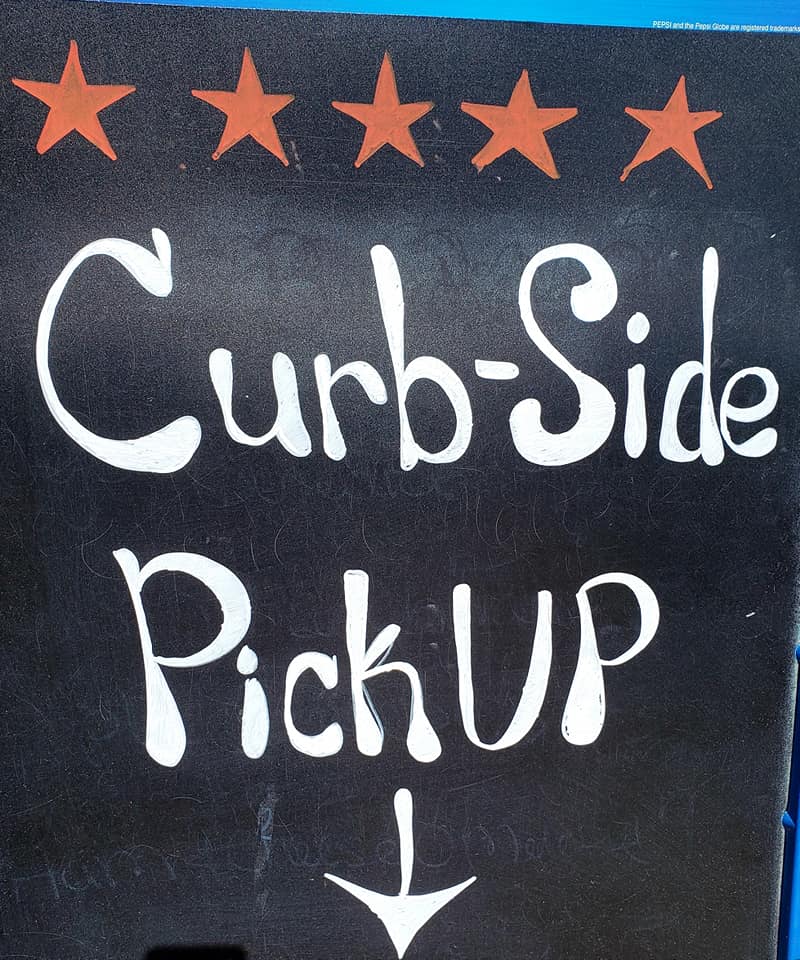 PEPSI and the Pepsi Globe are registered trademarks
Curb-Side
PickUP